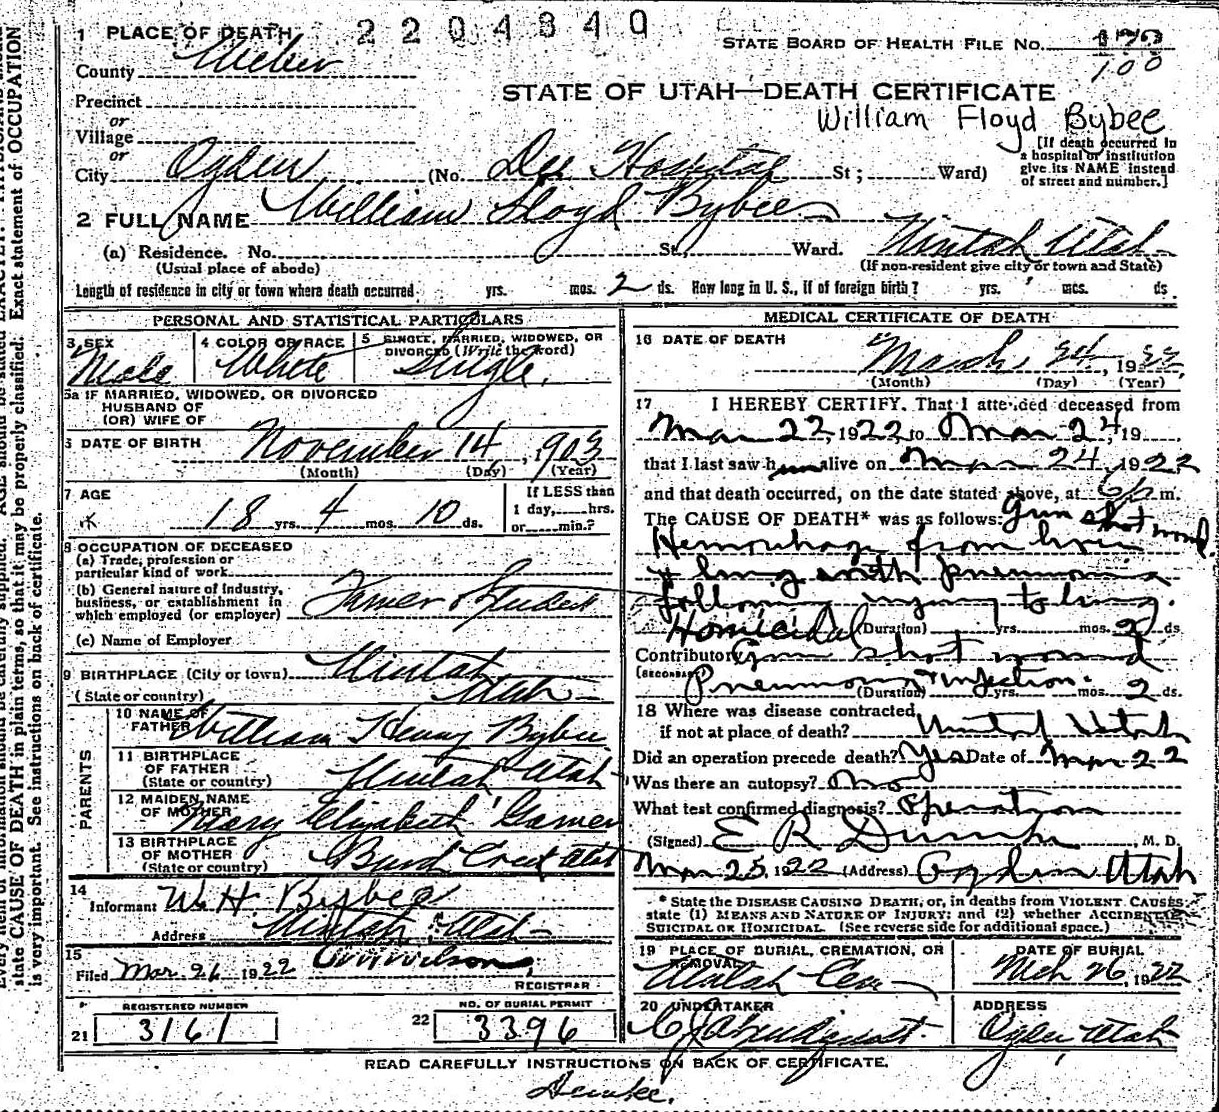 2204340
1 PLACE OF DEATH
STATE BOARD OF HEALTH FILE NO. 170
100
County Weber
STATE OF UTAH—DEATH CERTIFICATE
William Floyd Bybee
Precinct
or
Village
or
City Ogden (No. Dee Hospital St; Ward)
[If death occurred in
a hospital or institution
give its NAME instead
of street and number.]
2 FULL NAME William Floyd Bybee
(a) Residence. No. St., Ward. Uintah Utah
(Usual place of abode) (If non-resident give city or town and State)
Length of residence in city or town where death occurred yrs. mos. 2 ds. How long in U. S., if of foreign birth? yrs. mos. ds
PERSONAL AND STATISTICAL PARTICULARS
3 SEX Male
4 COLOR OR RACE White
5 SINGLE, MARRIED, WIDOWED, OR
DIVORCED (Write the word)
Single.
5a IF MARRIED, WIDOWED, OR DIVORCED
HUSBAND OF
(OR) WIFE OF
6 DATE OF BIRTH November 14, 1903
(Month) (Day) (Year)
7 AGE
18 yrs. 4 mos. 10 ds.
If LESS than
1 day, hrs.
or min.?
8 OCCUPATION OF DECEASED
(a) Trade, profession or
particular kind of work
(b) General nature of Industry,
business, or establishment in
which employed (or employer)
Student
(c) Name of Employer
9 BIRTHPLACE (City or town) Uintah
(State or country) Utah
PARENTS
10 NAME OF
FATHER William Henry Bybee
11 BIRTHPLACE
OF FATHER
(State or country) Uintah Utah
12 MAIDEN NAME
OF MOTHER Mary Elizabeth Garner
13 BIRTHPLACE
OF MOTHER
(State or country) Creek Utah
14
Informant W. H. Bybee
Address Uintah Utah
15
Filed Mar. 26 1922 Wilson
REGISTRAR
REGISTERED NUMBER
21 3161
NO. OF BURIAL PERMIT
22 3396
MEDICAL CERTIFICATE OF DEATH
16 DATE OF DEATH
March 24, 1922
(Month) (Day) (Year)
17 I HEREBY CERTIFY. That I attended deceased from
Mar 22, 1922 to Mar 24, 19
that I last saw him alive on Mar 24, 1922
and that death occurred, on the date stated above, at 6 p m.
The CAUSE OF DEATH* was as follows: Gun shot wound.
Hemorrhage from liver
& lung with pneumonia
following injury to lung.
Homicidal (Duration) yrs. mos. 2 ds
Contributory Gun shot wound
(SECONDARY) Pneumonia + infection.
(Duration) yrs. mos. 2 ds.
18 Where was disease contracted
if not at place of death? Uintah Utah
Did an operation precede death? Yes Date of Mar 22
Was there an autopsy? no
What test confirmed diagnosis? Operation
(Signed) E R Dumke M. D.
Mar 25, 1922 (Address) Ogden Utah
* State the DISEASE CAUSING DEATH, or, in deaths from VIOLENT CAUSES
state (1) MEANS AND NATURE OF INJURY; and (2) whether ACCIDENTAL
SUICIDAL OR HOMICIDAL. (See reverse side for additional space.)
19 PLACE OF BURIAL, CREMATION, OR
REMOVAL
Uintah Cem
DATE OF BURIAL
Mch 26, 1922
20 UNDERTAKER
ADDRESS
Ogden, Utah
READ CAREFULLY INSTRUCTIONS ON BACK OF CERTIFICATE.
Dumke.
state CAUSE OF DEATH in plain terms, so that it may be properly classified. Exact statement of OCCUPATION
is very important. See instructions on back of certificate.